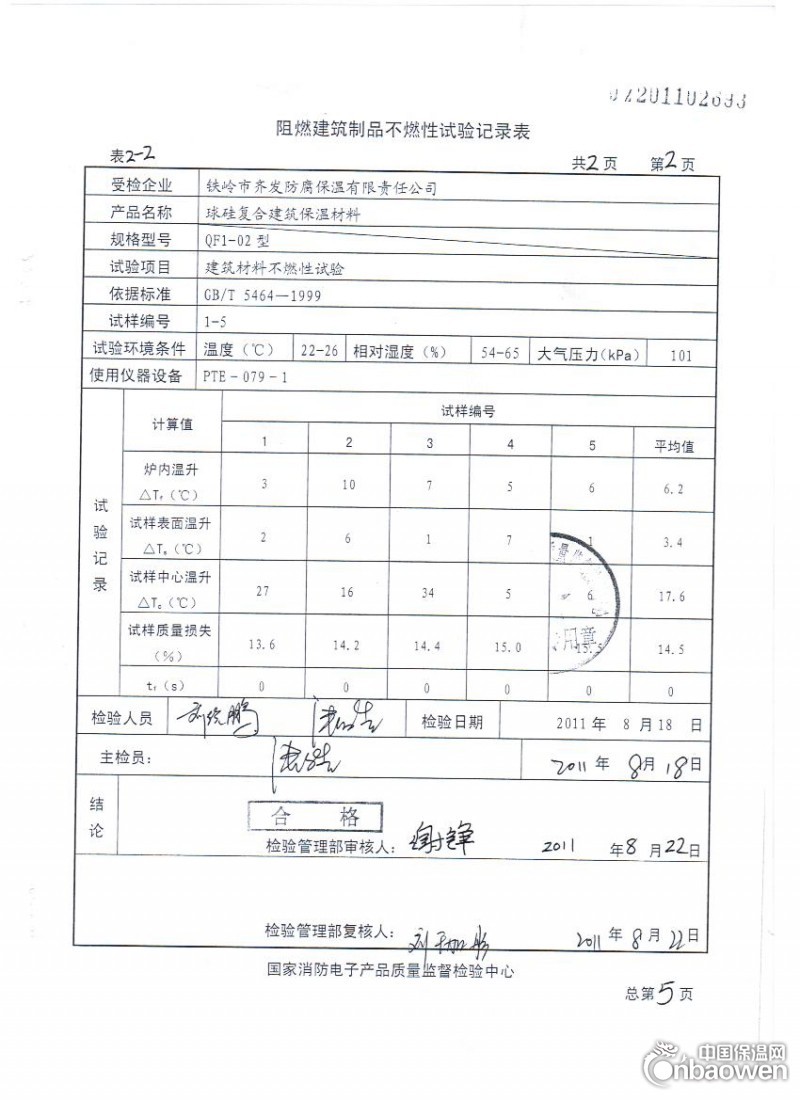 201102693
阻燃建筑制品不燃性试验记录表
表2-2 共2页 第2页
受检企业 铁岭市齐发防腐保温有限责任公司
产品名称 球硅复合建筑保温材料
规格型号 QF1-02型
试验项目 建筑材料不燃性试验
依据标准 GB/T 5464—1999
试样编号 1-5
试验环境条件 温度(℃) 22-26 相对湿度(%) 54-65 大气压力(kPa) 101
使用仪器设备 PTE-079-1
试验记录
计算值 试样编号
1 2 3 4 5 平均值
炉内温升
△Tf(℃) 3 10 7 5 6 6.2
试样表面温升
△Ts(℃) 2 6 1 7 1 3.4
试样中心温升
△Tc(℃) 27 16 34 5 6 17.6
试样质量损失
(%) 13.6 14.2 14.4 15.0 15.5 14.5
tf(s) 0 0 0 0 0 0
质量
用章
检验人员 检验日期 2011年 8月18日
主检员: 2011年8月18日
结论
合格
检验管理部审核人: 谢锋 2011年8月22日
检验管理部复核人: 2011年8月22日
国家消防电子产品质量监督检验中心
总第5页
中国保温网
nbaowen